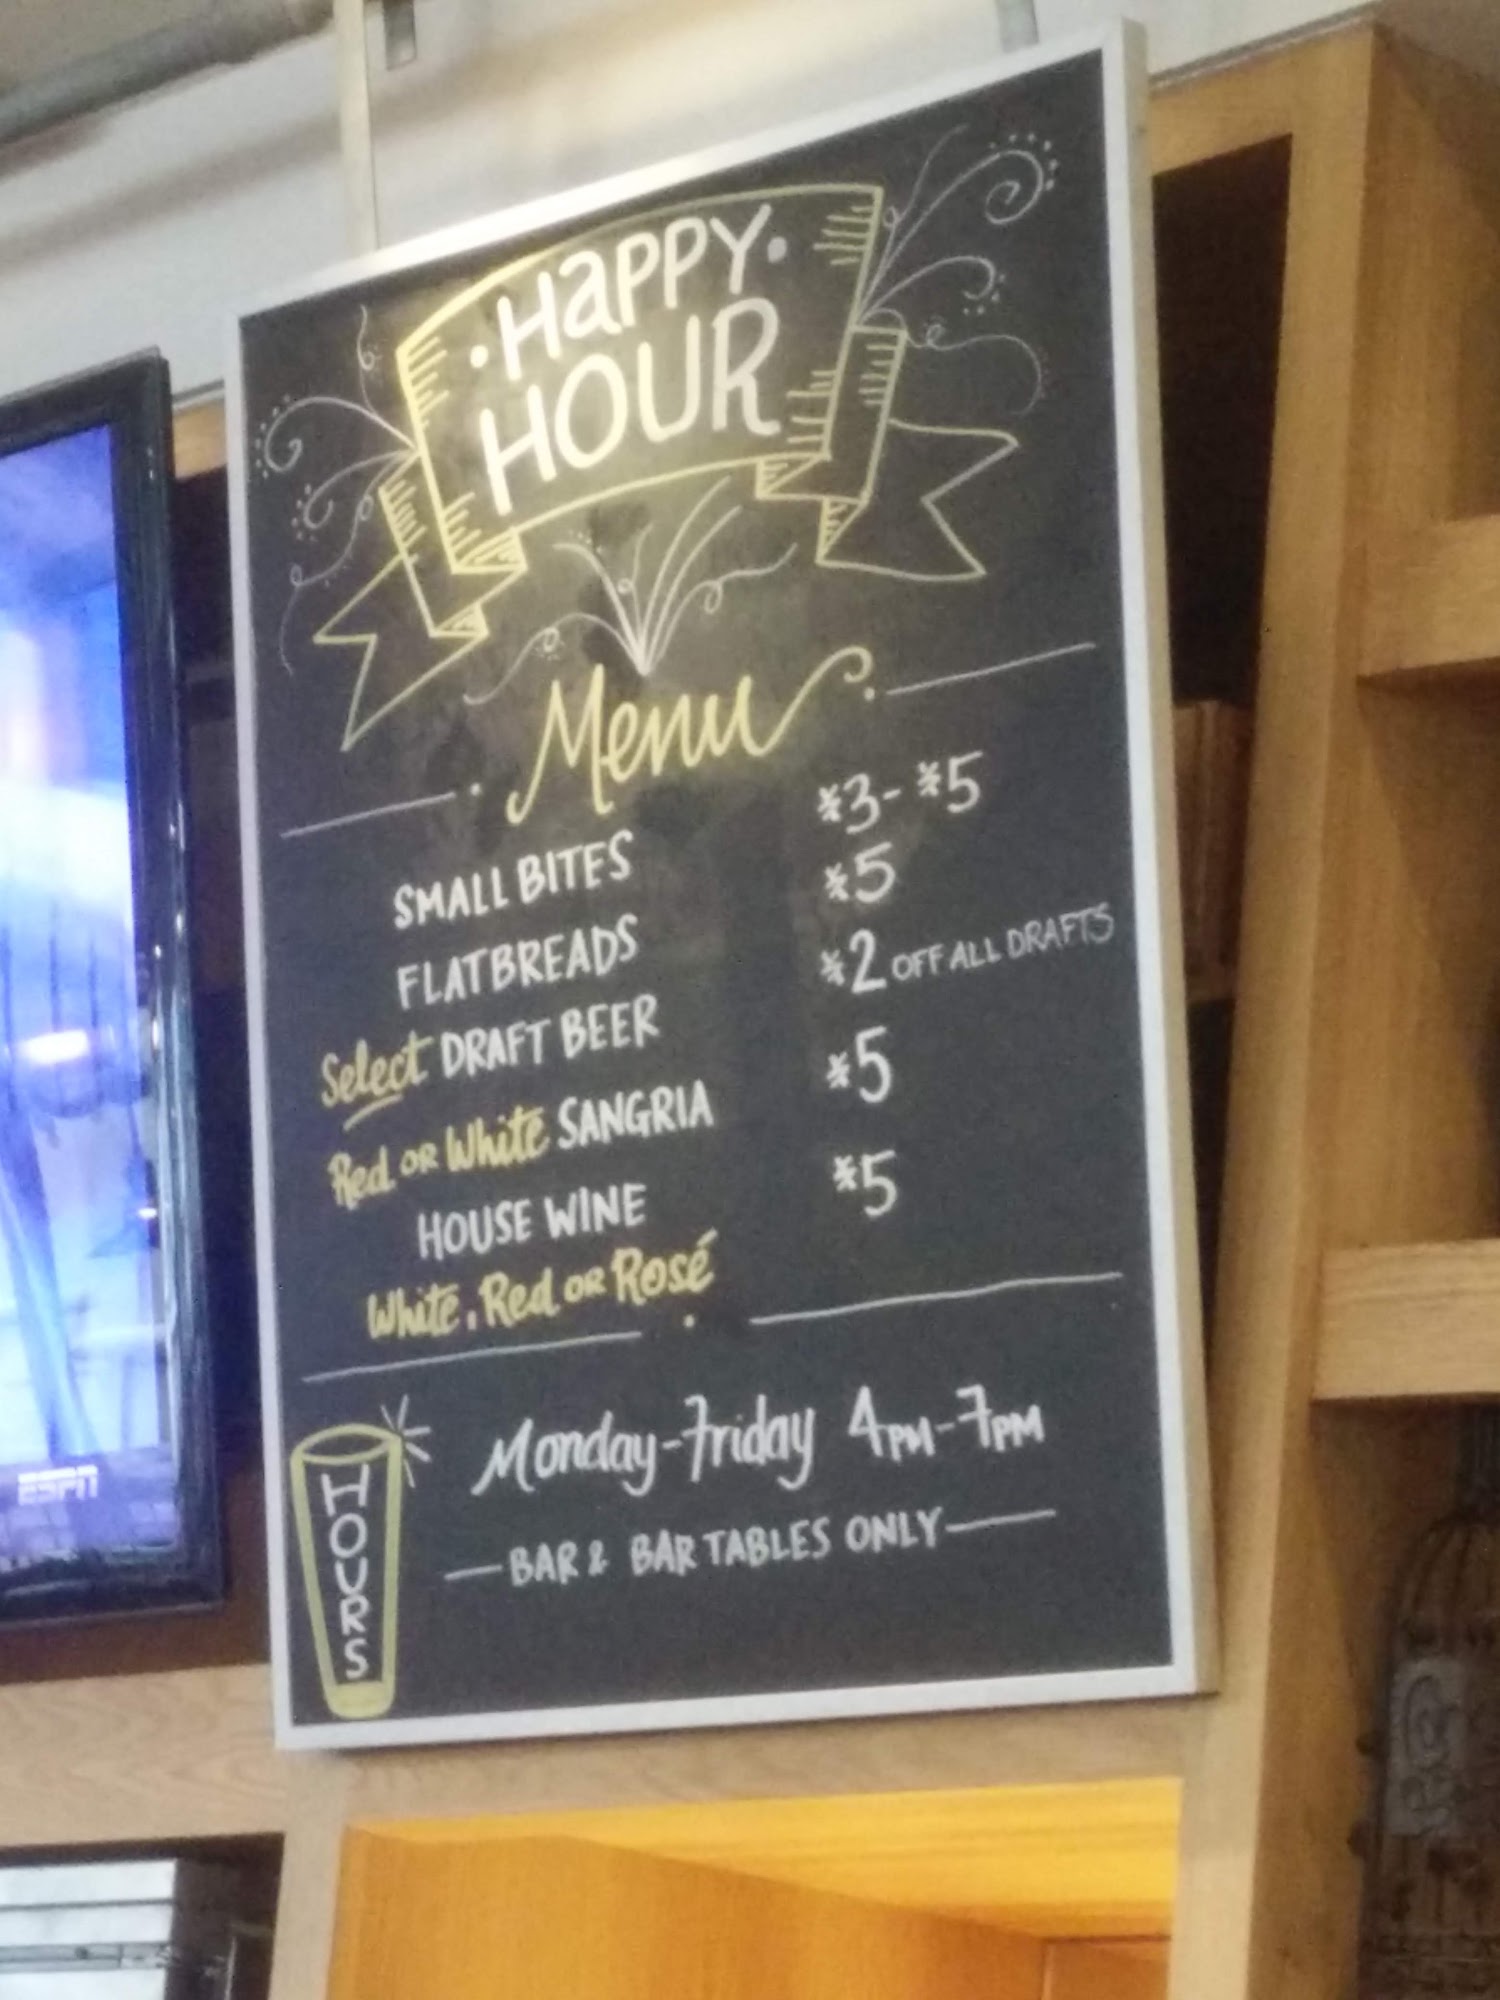 ·HAPPY·
HOUR
Menu
SMALL BITES $3-$5
FLATBREADS $5
Select DRAFT BEER $2 OFF ALL DRAFTS
Red OR White SANGRIA $5
HOUSE WINE $5
White, Red OR Rosé
HOURS
Monday-Friday 4PM-7PM
—BAR & BAR TABLES ONLY—
ESPN